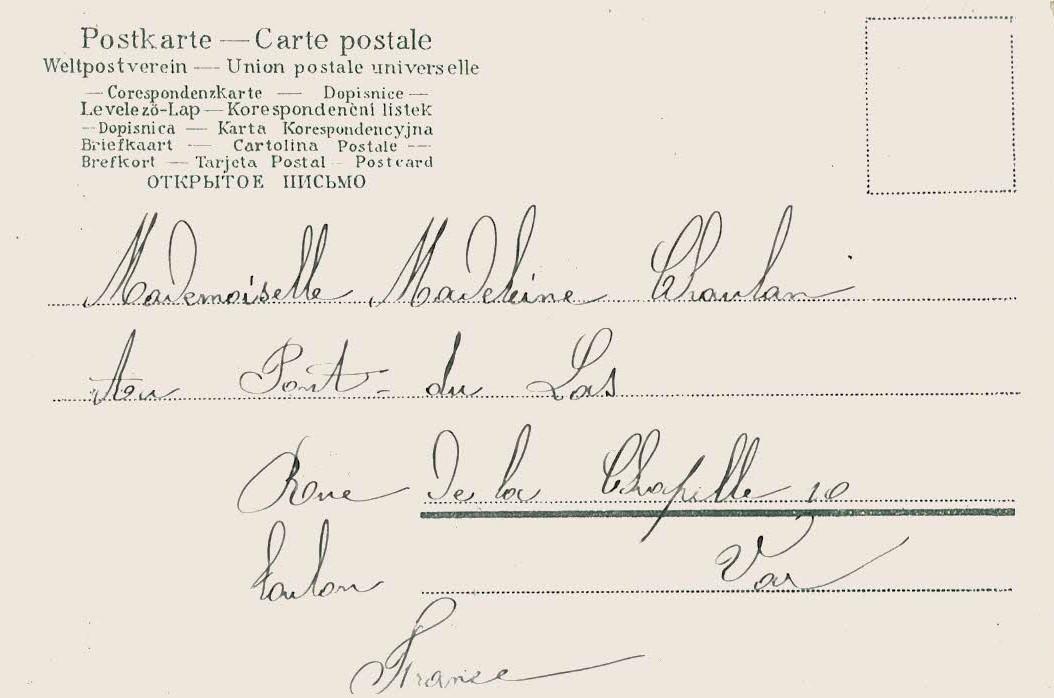 Postkarte — Carte postale
Weltpostverein — Union postale universelle
— Corespondenzkarte — Dopisnice —
Levelező-Lap — Korespondenčni listek
— Dopisnica — Karta Korespondencyjna
Briefkaart — Cartolina Postale —
Brefkort — Tarjeta Postal — Postcard
ОТКРЫТОЕ ПИСЬМО
Mademoiselle Madeleine
Au Pont - du Las
Rue de la Chapelle 10
Toulon Var
France